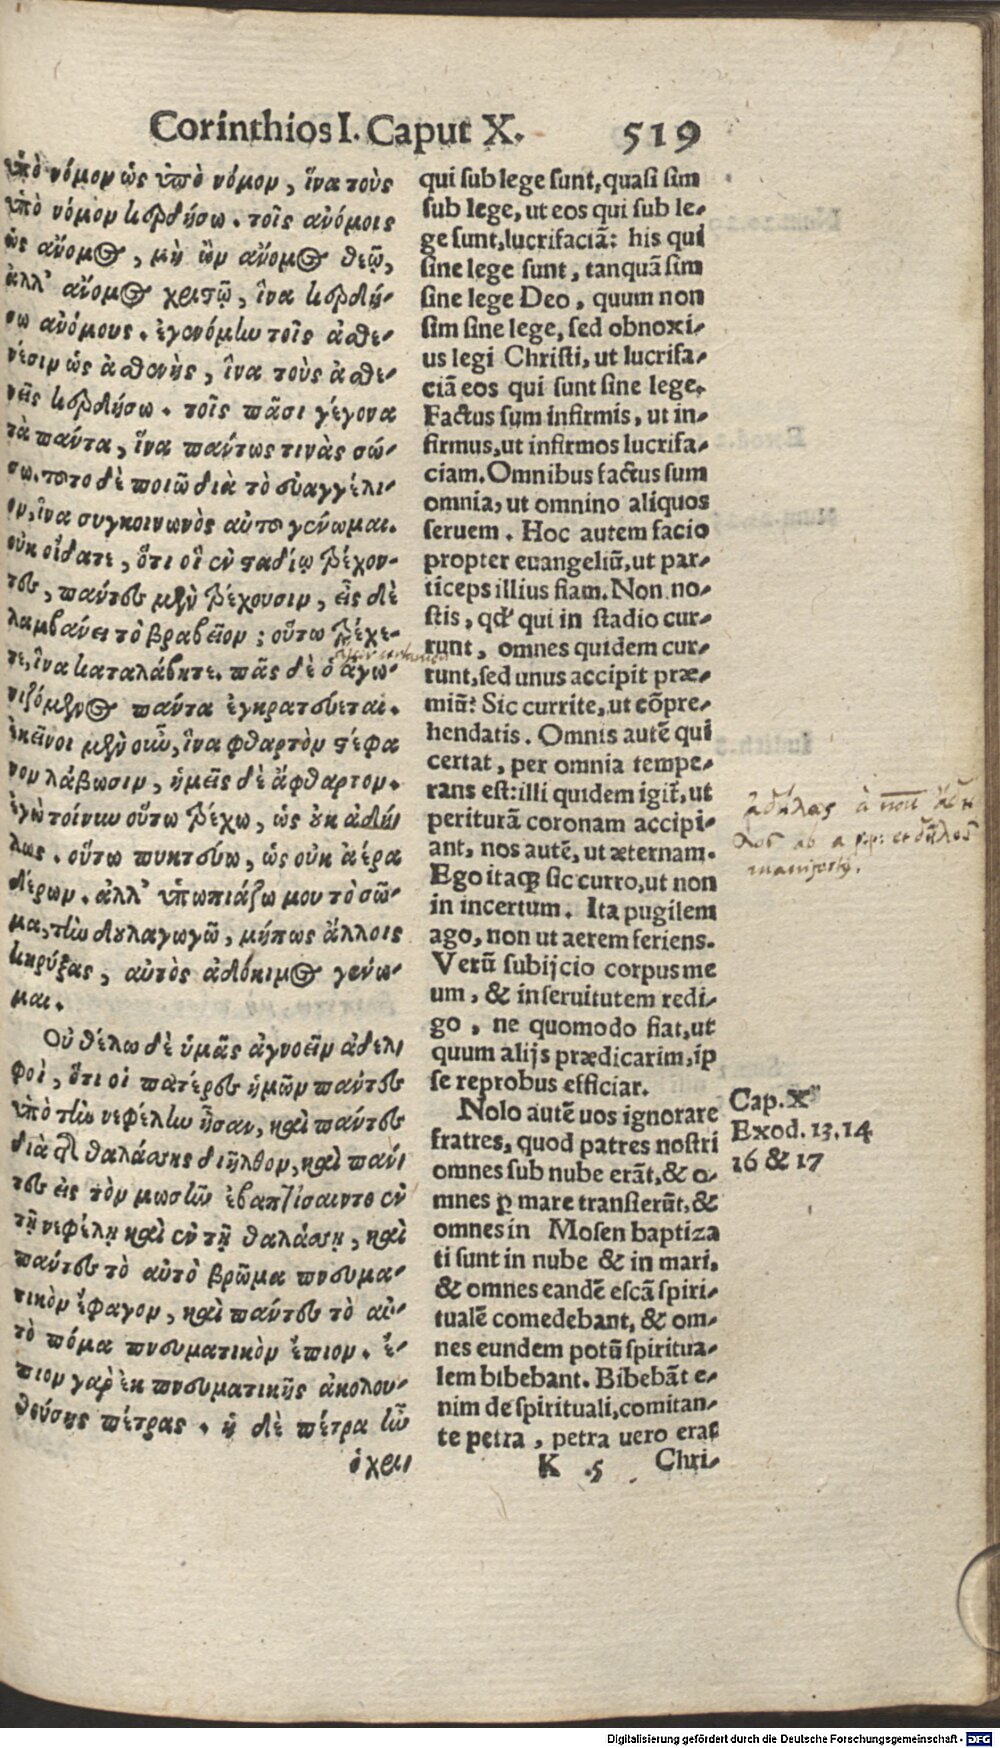 Corinthios I. Caput X. 519
ὑπὸ νόμον ὡς ὑπὸ νόμον, ἵνα τοὺς
ὑπὸ νόμον κερδήσω. τοῖς ἀνόμοις
ὡς ἄνομος, μὴ ὢν ἄνομος θεῷ,
ἀλλ' ἄνομος χριστῷ, ἵνα κερδή-
σω ἀνόμους. ἐγενόμην τοῖς ἀσθε-
νέσιν ὡς ἀσθενὴς, ἵνα τοὺς ἀσθε-
νεῖς κερδήσω. τοῖς πᾶσι γέγονα
τὰ πάντα, ἵνα πάντως τινὰς σώ-
σω. τοῦτο δὲ ποιῶ διὰ τὸ εὐαγγέλι-
ον, ἵνα συγκοινωνὸς αὐτοῦ γένωμαι.
οὐκ οἴδατε, ὅτι οἱ ἐν σταδίῳ τρέχον-
τες, πάντες μὲν τρέχουσιν, εἷς δὲ
λαμβάνει τὸ βραβεῖον; οὕτω τρέχε-
τε, ἵνα καταλάβητε. πᾶς δὲ ὁ ἀγω-
νιζόμενος πάντα ἐγκρατεύεται.
ἐκεῖνοι μὲν οὖν, ἵνα φθαρτὸν στέφα
νον λάβωσιν, ἡμεῖς δὲ ἄφθαρτον.
ἐγὼ τοίνυν οὕτω τρέχω, ὡς οὐκ ἀδή
λως. οὕτω πυκτεύω, ὡς οὐκ ἀέρα
δέρων. ἀλλ' ὑπωπιάζω μου τὸ σῶ-
μα, καὶ δουλαγωγῶ, μήπως ἄλλοις
κηρύξας, αὐτὸς ἀδόκιμος γένω-
μαι.
Οὐ θέλω δὲ ὑμᾶς ἀγνοεῖν ἀδελ
φοὶ, ὅτι οἱ πατέρες ἡμῶν πάντες
ὑπὸ τὴν νεφέλην ἦσαν, καὶ πάντες
διὰ τῆς θαλάσσης διῆλθον, καὶ πάν
τες εἰς τὸν μωσῆν ἐβαπτίσαντο ἐν
τῇ νεφέλῃ καὶ ἐν τῇ θαλάσσῃ, καὶ
πάντες τὸ αὐτὸ βρῶμα πνευμα-
τικὸν ἔφαγον, καὶ πάντες τὸ αὐ-
τὸ πόμα πνευματικὸν ἔπιον. ἔ-
πιον γὰρ ἐκ πνευματικῆς ἀκολου-
θούσης πέτρας. ἡ δὲ πέτρα ἦν
ὁ χρι
qui sub lege sunt, quasi sim
sub lege, ut eos qui sub le-
ge sunt, lucrifaciã: his qui
sine lege sunt, tanquã sim
sine lege Deo, quum non
sim sine lege, sed obnoxi-
us legi Christi, ut lucrifa-
ciã eos qui sunt sine lege.
Factus sum infirmis, ut in-
firmus, ut infirmos lucrifa-
ciam. Omnibus factus sum
omnia, ut omnino aliquos
seruem. Hoc autem facio
propter euangeliũ, ut par-
ticeps illius fiam. Non no-
stis, qď qui in stadio cur-
runt, omnes quidem cur-
runt, sed unus accipit præ-
miũ? Sic currite, ut cõpre-
hendatis. Omnis autẽ qui
certat, per omnia tempe-
rans est: illi quidem igit̃, ut
perituram coronam accipi-
ant, nos autẽ, ut æternam.
Ego itaq; sic curro, ut non
in incertum. Ita pugilem
ago, non ut aerem feriens.
Verũ subijcio corpus me
um, & in seruitutem redi-
go, ne quomodo fiat, ut
quum alijs prædicarim, ip
se reprobus efficiar.
Nolo autẽ uos ignorare
fratres, quod patres nostri
omnes sub nube erãt, & o-
mnes ꝑ mare transierũt, &
omnes in Mosen baptiza
ti sunt in nube & in mari,
& omnes eandẽ escã spiri-
tualẽ comedebant, & om-
nes eundem potũ spiritua-
lem bibebant. Bibebãt e-
nim de spirituali, comitan-
te petra, petra uero erat
K 5 Chri-
Cap. X
Exod. 13. 14
16 & 17
Digitalisierung gefördert durch die Deutsche Forschungsgemeinschaft - DFG